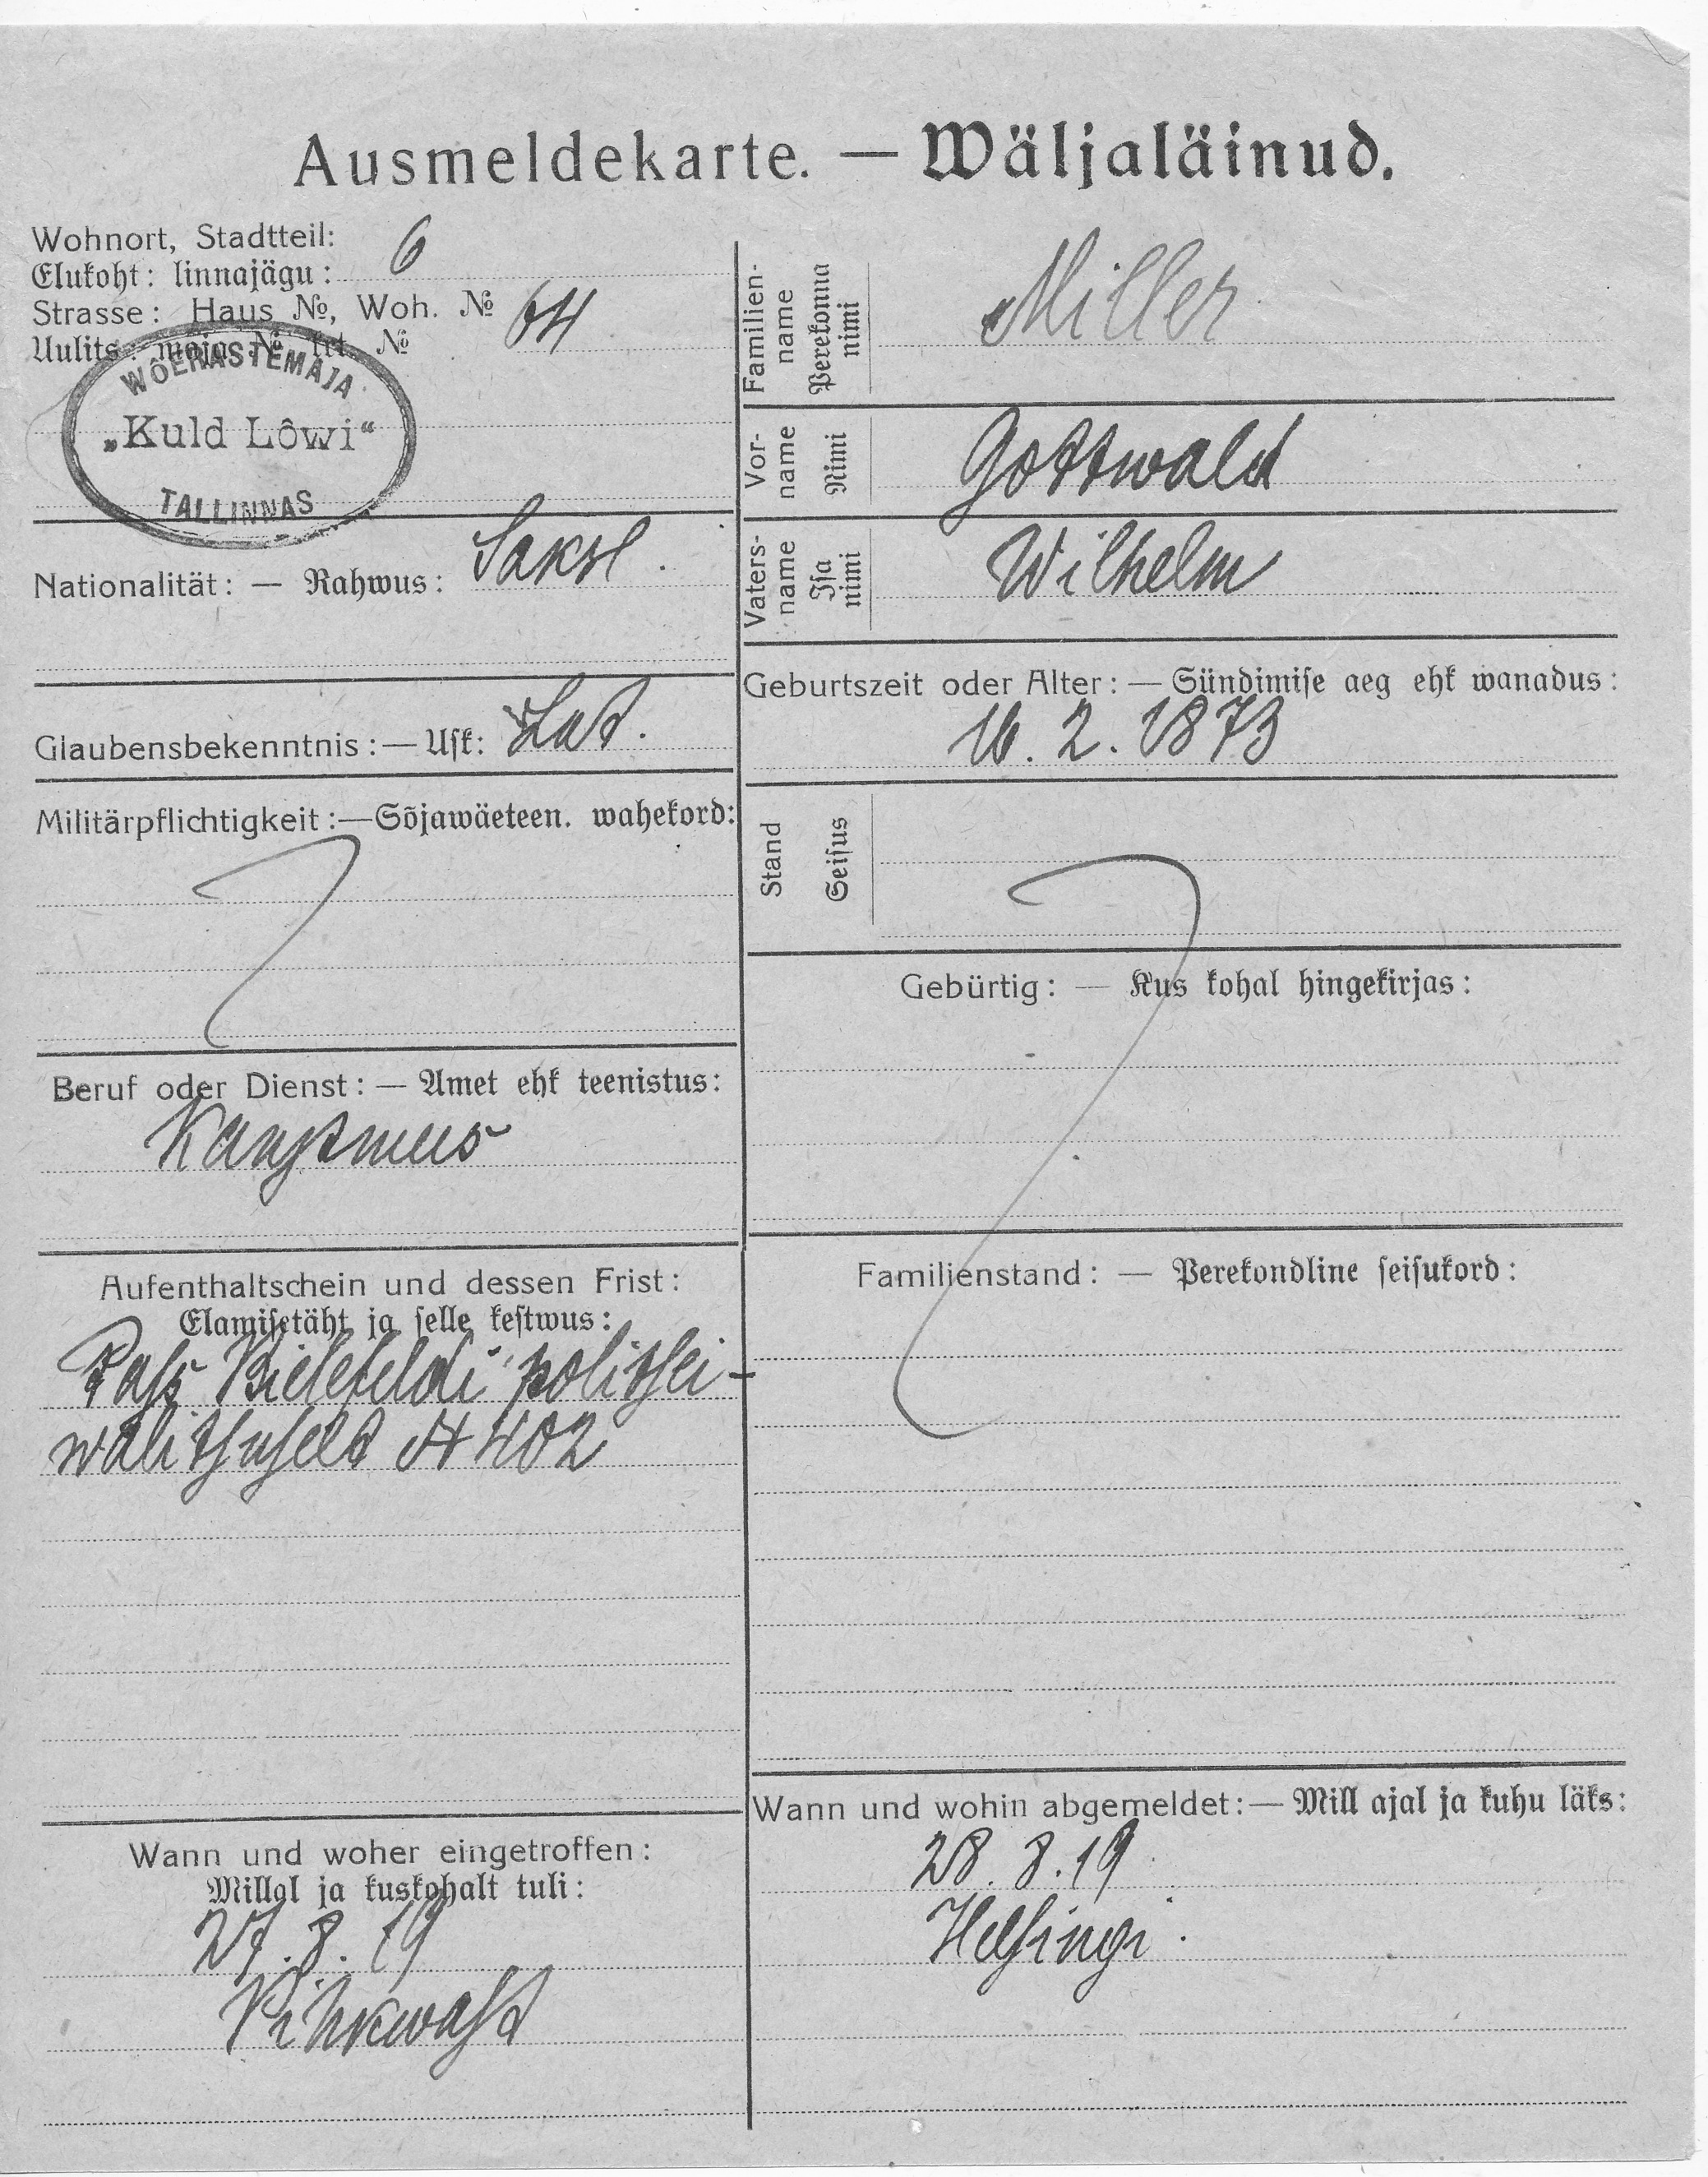 Ausmeldekarte. — Wäljaläinud.
Wohnort, Stadtteil: 6
Elukoht: linnajägu:
Strasse: Haus №, Woh. № 64
Uulits: maja № krt. №
WÕERASTEMAJA
„Kuld Lôwi“
TALLINNAS
Nationalität: — Rahwus: Saksl.
Glaubensbekenntnis: — Usk: Lut.
Militärpflichtigkeit: — Sõjawäeteen. wahekord:
Beruf oder Dienst: — Amet ehk teenistus:
Kaupmees
Aufenthaltschein und dessen Frist:
Elamisetäht ja selle kestwus:
Pass Bielefeldi politsei-
walitsuselt A 402
Wann und woher eingetroffen:
Millal ja kuskohalt tuli:
27. 8. 19
Pihkwast
Familien-
name
Perekonna
nimi
Miller
Vor-
name
Nimi
Gottwald
Vaters-
name
Isa
nimi
Wilhelm
Geburtszeit oder Alter: — Sündimise aeg ehk wanadus:
16. 2. 1873
Stand
Seisus
Gebürtig: — Kus kohal hingekirjas:
Familienstand: — Perekondline seisukord:
Wann und wohin abgemeldet: — Mill ajal ja kuhu läks:
28. 8. 19
Helsingi.